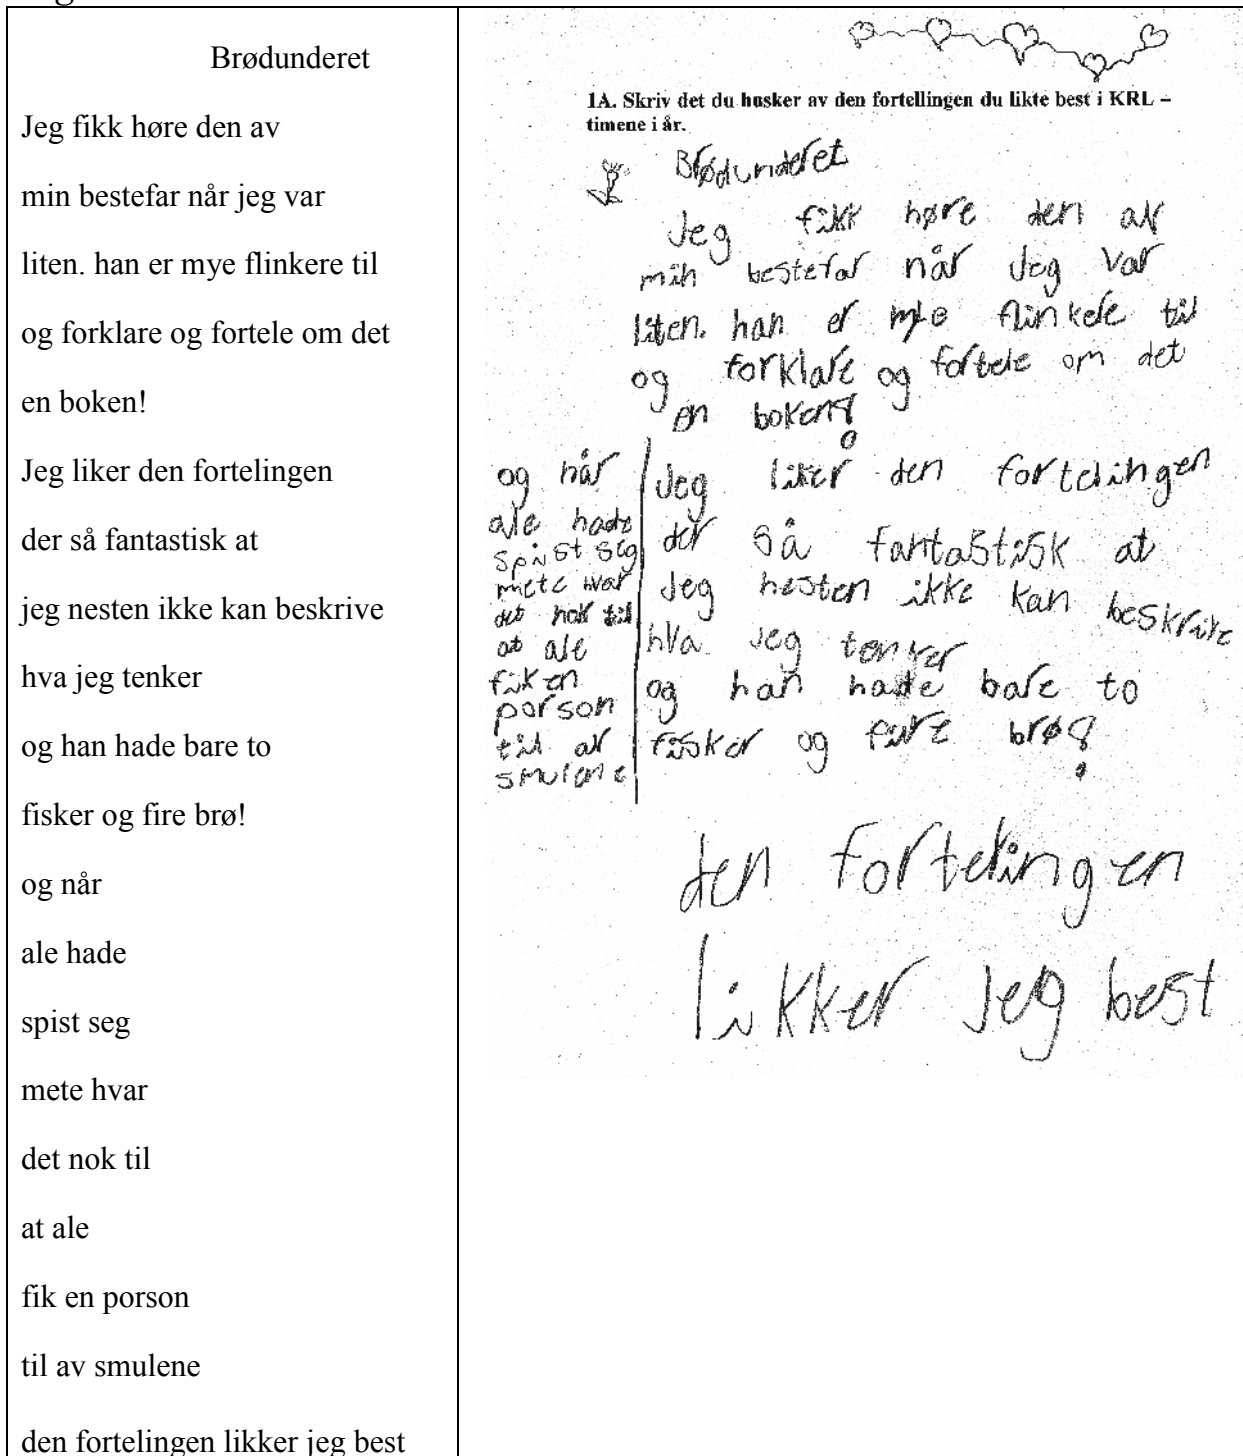 Brødunderet
Jeg fikk høre den av
min bestefar når jeg var
liten. han er mye flinkere til
og forklare og fortele om det
en boken!
Jeg liker den fortelingen
der så fantastisk at
jeg nesten ikke kan beskrive
hva jeg tenker
og han hade bare to
fisker og fire brø!
og når
ale hade
spist seg
mete hvar
det nok til
at ale
fik en porson
til av smulene
den fortelingen likker jeg best
1A. Skriv det du husker av den fortellingen du likte best i KRL –
timene i år.
Brødunderet
Jeg fikk høre den av
min bestefar når jeg var
liten. han er mye flinkere til
og forklare og fortele om det
en boken!
Jeg liker den fortelingen
der så fantastisk at
jeg nesten ikke kan beskrive
hva jeg tenker
og han hade bare to
fisker og fire brø!
og når
ale hade
spist seg
mete hvar
det nok til
at ale
fik en
porson
til av
smulene
den fortelingen
likker jeg best